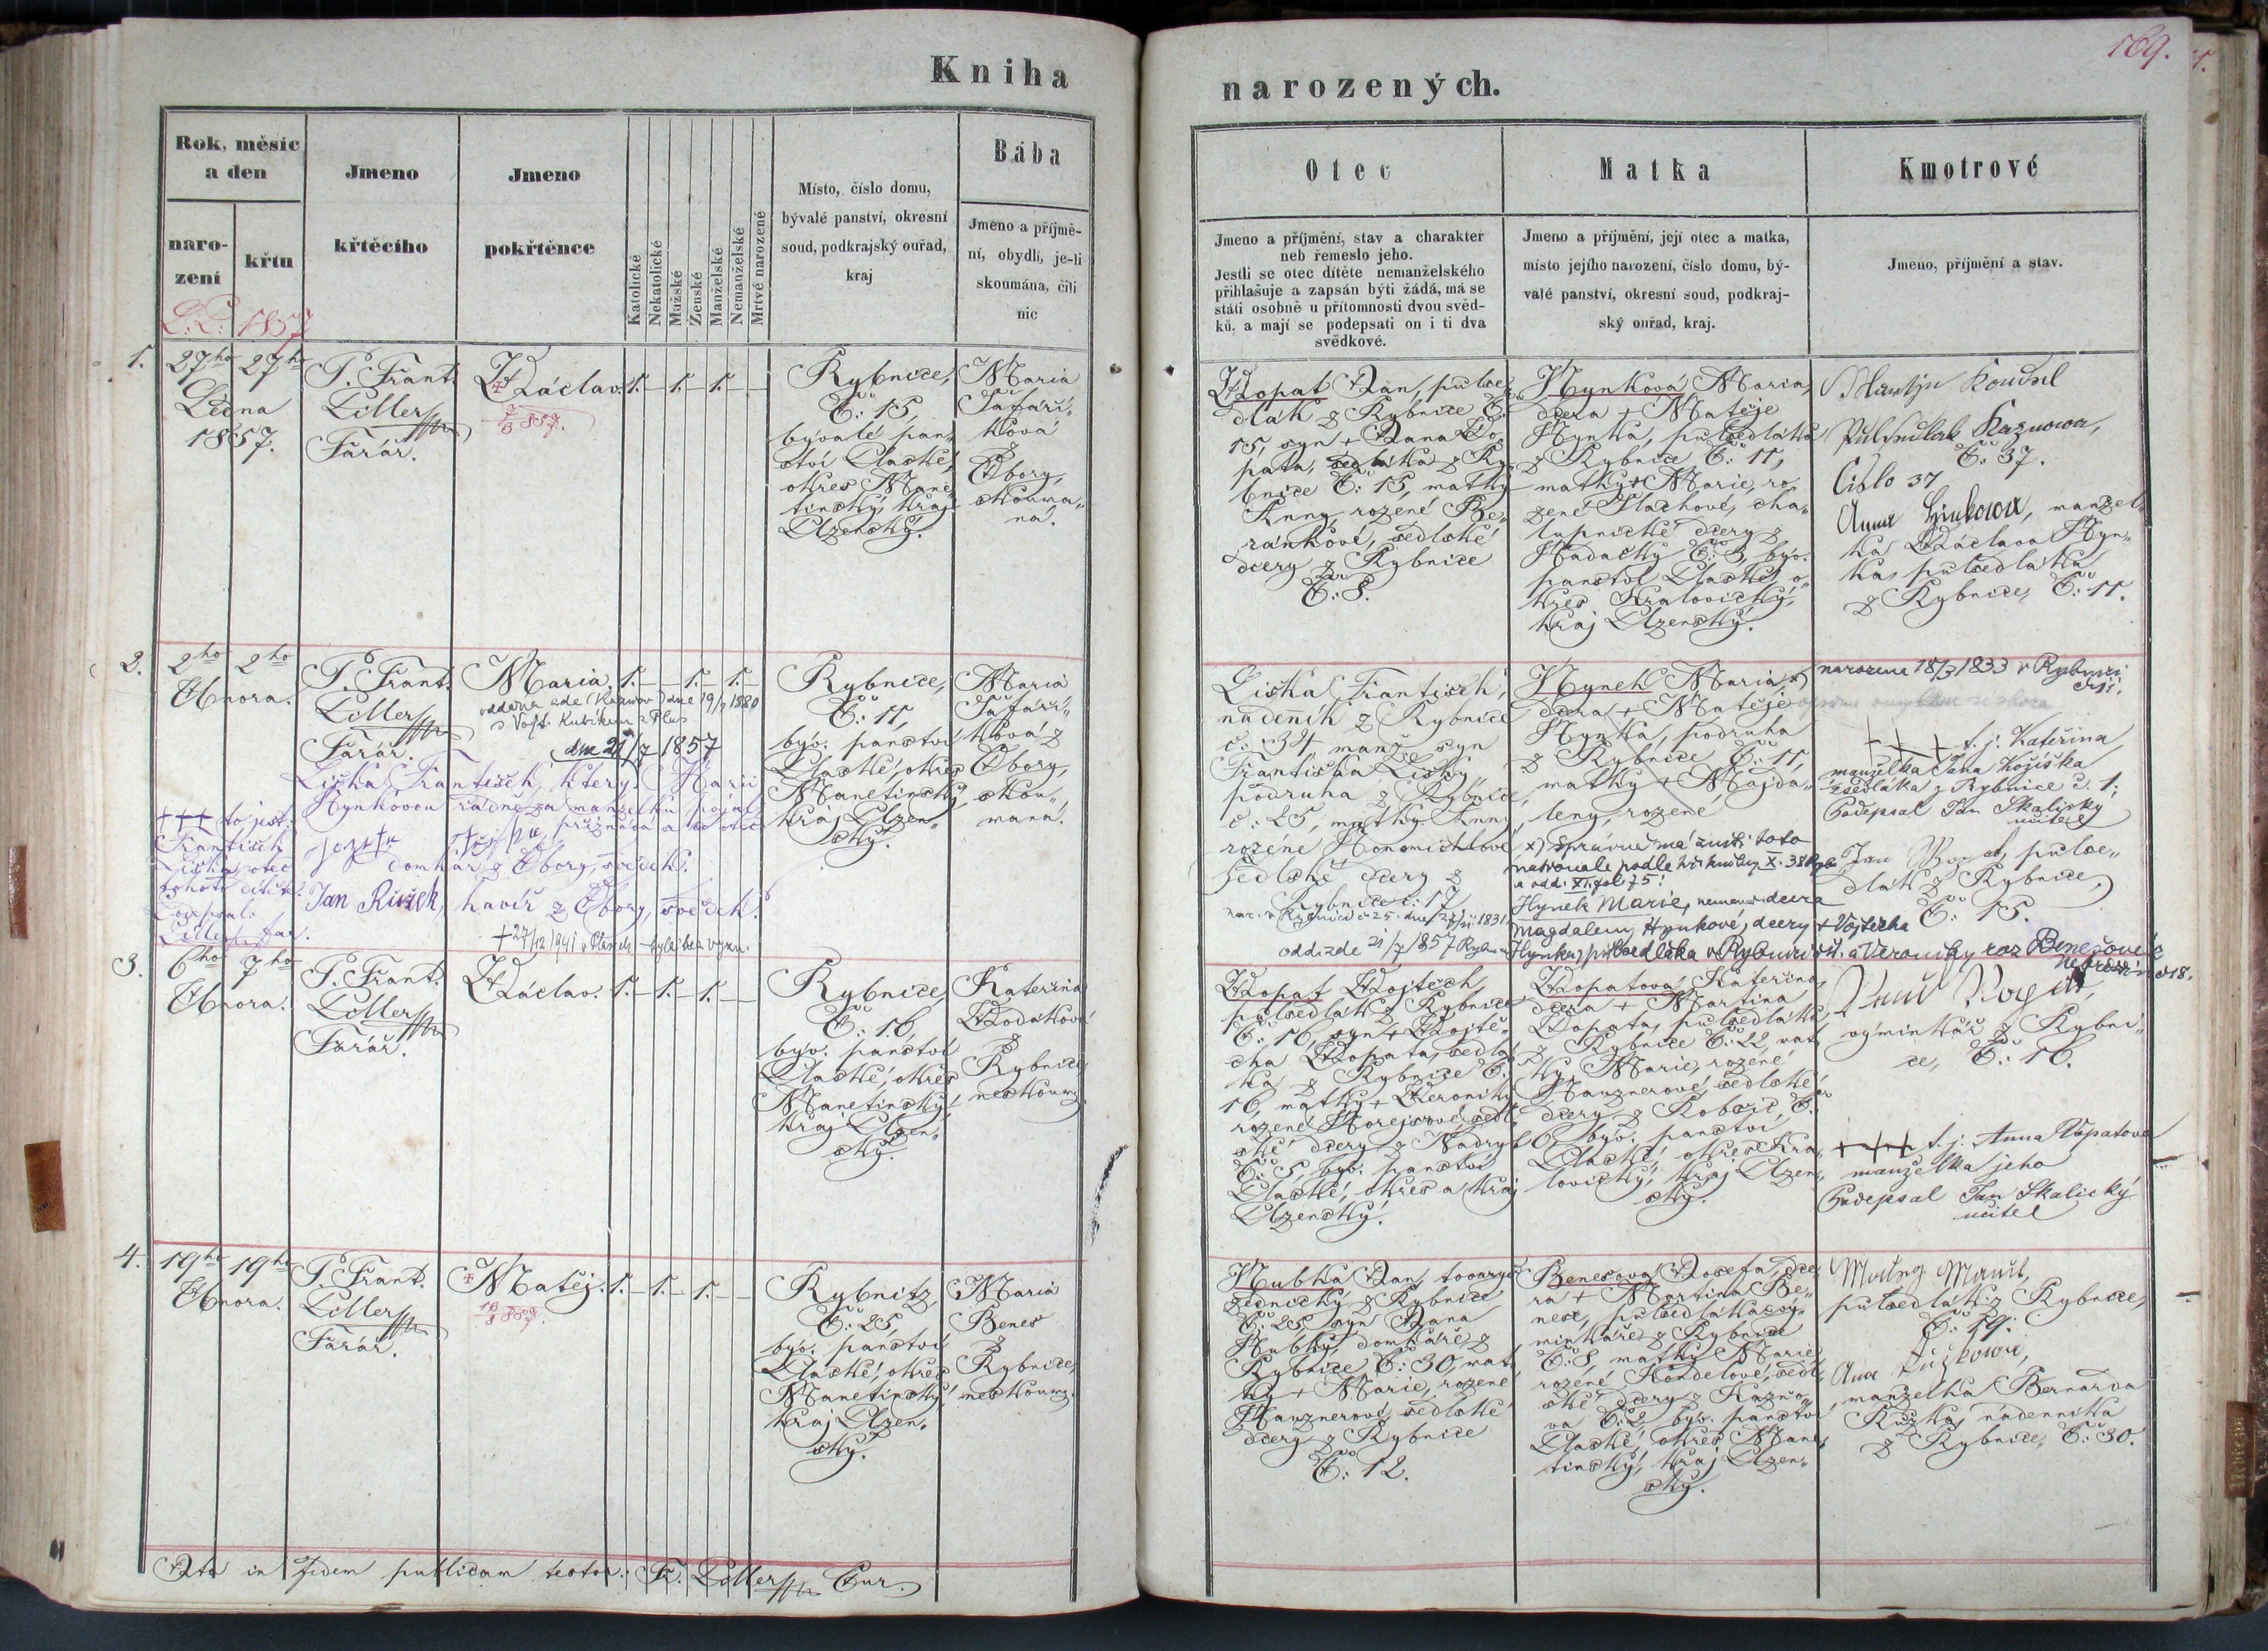 Kniha
narozených.
169.
Rok, měsíc
a den
naro-
zení
křtu
L. P. 1857
Jmeno
křtěcího
Jmeno
pokřtěnce
Katolické
Nekatolické
Mužské
Ženské
Manželské
Nemanželské
Mrtvé narozené
Místo, číslo domu,
bývalé panství, okresní
soud, podkrajský ouřad,
kraj
Bába
Jmeno a příjmě-
ní, obydlí, je-li
skoumána, čili
nic
Otec
Jmeno a příjmění, stav a charakter
neb řemeslo jeho.
Jestli se otec dítěte nemanželského
přihlašuje a zapsán býti žádá, má se
státi osobně u přítomnosti dvou svěd-
ků, a mají se podepsati on i ti dva
svědkové.
Matka
Jmeno a příjmění, její otec a matka,
místo jejího narození, číslo domu, bý-
valé panství, okresní soud, podkraj-
ský ouřad, kraj.
Kmotrové
Jmeno, příjmění a stav.
1.
27ho
Ledna
1857.
27ho
P. Frant.
Liller
Farář.
Václav.
1. – 1. – 1. – –
Rybnice,
Č: 15,
bývalé pan„
ství Plaské,
okres Mane„
tinský, kraj
Plzenský.
Maria
Šafaří„
ková
z
Obory,
skouma„
ná.
Vopat Jan, půlse„
dlák z Rybnice Č:
15, syn + Jana Vo„
pata, sedláka z Ry„
bnice Č: 15, matky
Anny, rozené Be„
ránkové, sedlské
dcery z Rybnice
Č: 8.
Hynková Maria,
dcera + Matěje
Hynka, půlsedláka
z Rybnice Č: 11,
matky + Marie, ro„
zené Vlachové, cha„
lupnické dcery z
Hadačky Č: 3, býv.
panství Plaské, o„
kres Kralovický,
kraj Plzenský.
Martin Koucul
Pulsedlak Kaznowa,
Č: 37.
Cislo 37
Anna Hinkowa, manžel„
ka Václava Hyn„
ka, půlsedláka
z Rybnice, Č: 11.
2.
2ho
Února.
2ho
P. Frant.
Liller
Farář.
Maria.
1. – – 1. – 1. –
oddána zde (Kaznov) dne 19/7 1880
s Vojt. Kubíkem z Plas
dne 21/7 1857
Liška František, který Marii
Hynkovou řádně za manželku pojal,
+++ to jest:
František
Liška, otec
tohoto dítěte.
Podepsal:
Liller, far.
domkář z Obory, svědek.
Jan Růžek, havíř z Obory, svědek.
+ 27/12 1941 v Plasích
Rybnice,
Č: 11,
býv. panství
Plaské, okres
Manetinský,
kraj Plzen„
ský.
Maria
Šafaří„
ková z
Obory,
skou„
mana.
Liška František,
nádenník z Rybnice
č: 34, manž. syn
Františka Lišky,
podruha z Rybnice,
č: 25, matky Anny
rozené
sedlské dcery z
Rybnice č: 17
nar. v Rybnici č 25. dne 1831
odd. zde 21/7 1857
Hynek Maria x)
dcera + Matěje
Hynka, podruha
z Rybnice Č: 11,
matky + Majda„
leny, rozené
x) správně má zníti toto
a odd. XI. fol 75:
Hynek Marie, neman. dcera
Magdaleny Hynkové, dcery + Vojtěcha
Hynka, půlsedláka v Rybnici č 11. a Veroniky roz Benešové z
Nebřezin č 18.
narozena 18/3 1833 v Rybnici
č 11.
+++ t. j. Kateřina,
manželka Jana Kožíška
sedláka z Rybnice č. 1;
Podepsal Jan Skalický
učitel
Jan Wopat, půlse„
dlák z Rybnice,
Č: 15.
3.
6ho
Února.
7ho
P. Frant.
Liller
Farář.
Václav.
1. – 1. – 1. – –
Rybnice,
Č: 16,
býv. panství
Plaské, okres
Manetinský,
kraj Plzen„
ský.
Kateřina
Vodáková
z
Rybnice
neskoum.
Vopat Vojtěch,
půlsedlák z Rybnice
Č: 16, syn + Vojtě„
cha Vopata, sedlá„
ka z Rybnice Č:
16, matky + Veroniky
rozené Horejsové, sedl„
ské dcery z Nadryb
Č: 5, býv. panství
Plaské, okres a kraj
Plzenský.
Vopatová Kateřina,
dcera + Martina
Vopata, půlsedláka
z Rybnice Č: 22, mat„
ky Marie, rozené
Hauznerové, sedlské
dcery z Kobozic, Č:
6, býv. panství
Plaské, okres Kra„
lovický, kraj Plzen„
ský.
výminkář z Rybni„
ce, Č: 16.
+++ t. j. Anna Vopatová
manželka jeho
Podepsal Jan Skalický
učitel
4.
19ho
Února.
19ho
P. Frant.
Liller
Farář.
Matěj.
1. – 1. – 1. – –
Rybnitz
Č: 25
býv. panství
Plaské, okres
Manetinský,
kraj Plzen„
ský.
Maria
Benes
z
Rybnice,
neskoum.
Hubka Jan, tovaryš
zednický z Rybnice
Č: 25, syn Jana
Hubky, domkáře z
Rybnice Č: 30, mat„
ky + Marie, rozené
Hauznerové, sedlské
dcery z Rybnice
Č: 12.
Benesova Josefa, dce„
ra + Martina Be„
nese, půlsedláka vý„
minkáře z Rybnice
Č: 8, matky Marie
rozené Kondelové, sedl„
ské dcery z Kazno„
va Č: 2 býv. panství
Plaské, okres Mane„
tinský, kraj Plzen„
ský.
půlsedlák z Rybnice,
Č: 19.
Anna Růžkowa,
manželka Bernarda
Růžka, nádenníka
z Rybnice, Č: 30.
Ita in fidem publicam testor: Fr. Liller Cur.